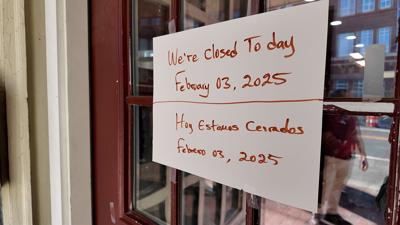 We're Closed To day
February 03, 2025
Hoy Estamos Cerrados
Febrero 03, 2025